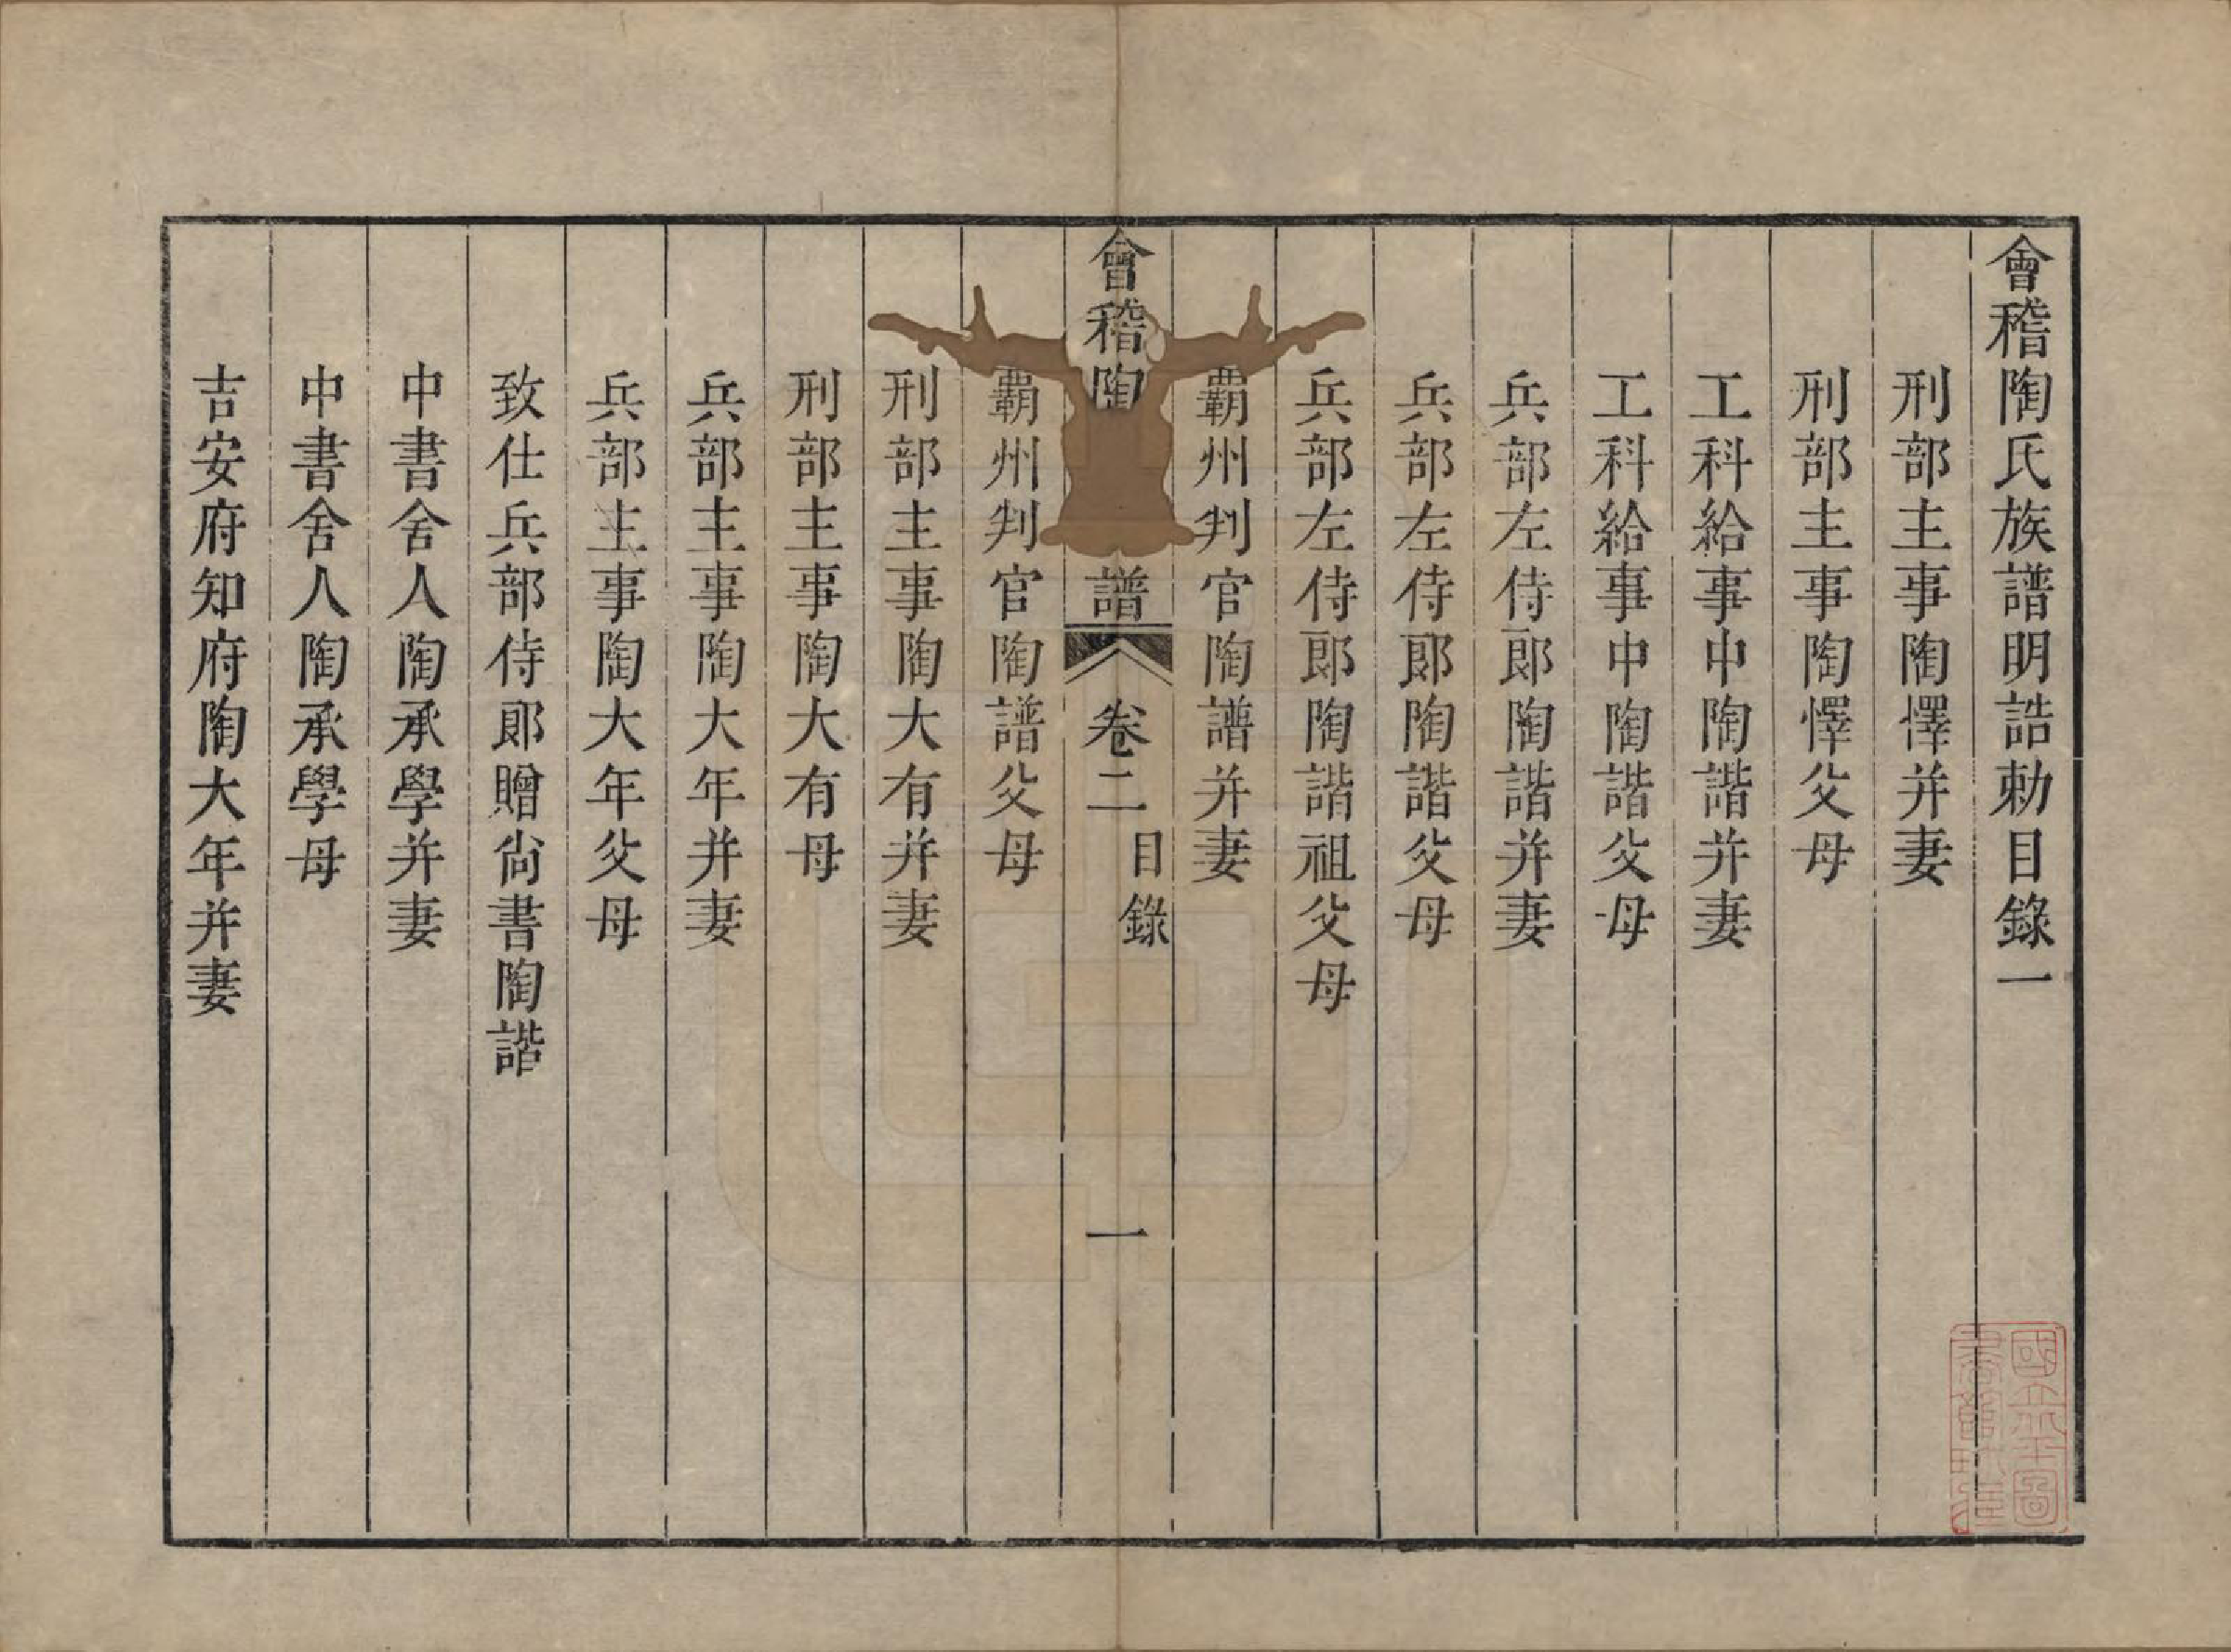 會稽陶氏族譜明誥勅目錄一
刑部主事陶懌并妻
刑部主事陶懌父母
工科給事中陶諧并妻
工科給事中陶諧父母
兵部左侍郎陶諧并妻
兵部左侍郎陶諧父母
兵部左侍郎陶諧祖父母
覇州判官陶譜并妻
會稽陶
譜
卷二
目錄
一
覇州判官陶譜父母
刑部主事陶大有并妻
刑部主事陶大有母
兵部主事陶大年并妻
兵部主事陶大年父母
致仕兵部侍郎贈尙書陶諧
中書舍人陶承學并妻
中書舍人陶承學母
吉安府知府陶大年并妻